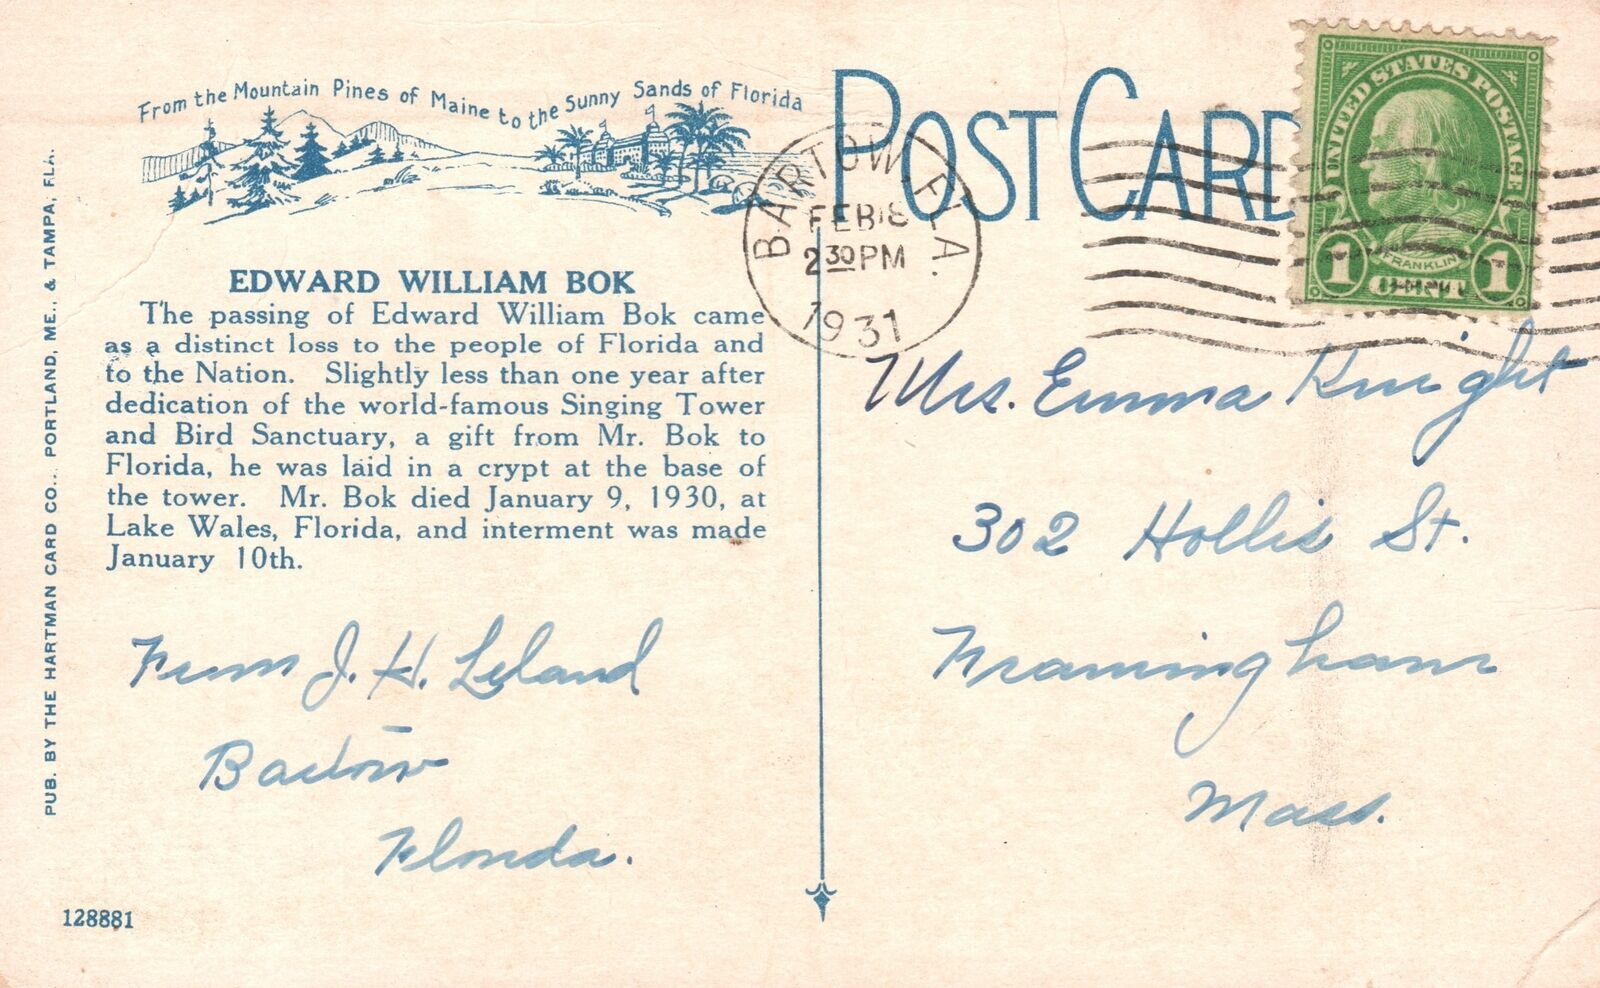 From the Mountain Pines of Maine to the Sunny Sands of Florida
POST CARD
UNITED STATES POSTAGE
FRANKLIN
1 1
BARTOW, FLA.
FEB 18
2 30 PM
1931
EDWARD WILLIAM BOK
The passing of Edward William Bok came
as a distinct loss to the people of Florida and
to the Nation. Slightly less than one year after
dedication of the world-famous Singing Tower
and Bird Sanctuary, a gift from Mr. Bok to
Florida, he was laid in a crypt at the base of
the tower. Mr. Bok died January 9, 1930, at
Lake Wales, Florida, and interment was made
January 10th.
From J. H. Leland
Bartow
Florida.
Mrs. Emma Knight
302 Hollis St.
Framingham
Mass.
PUB. BY THE HARTMAN CARD CO., PORTLAND, ME., & TAMPA, FLA.
128881